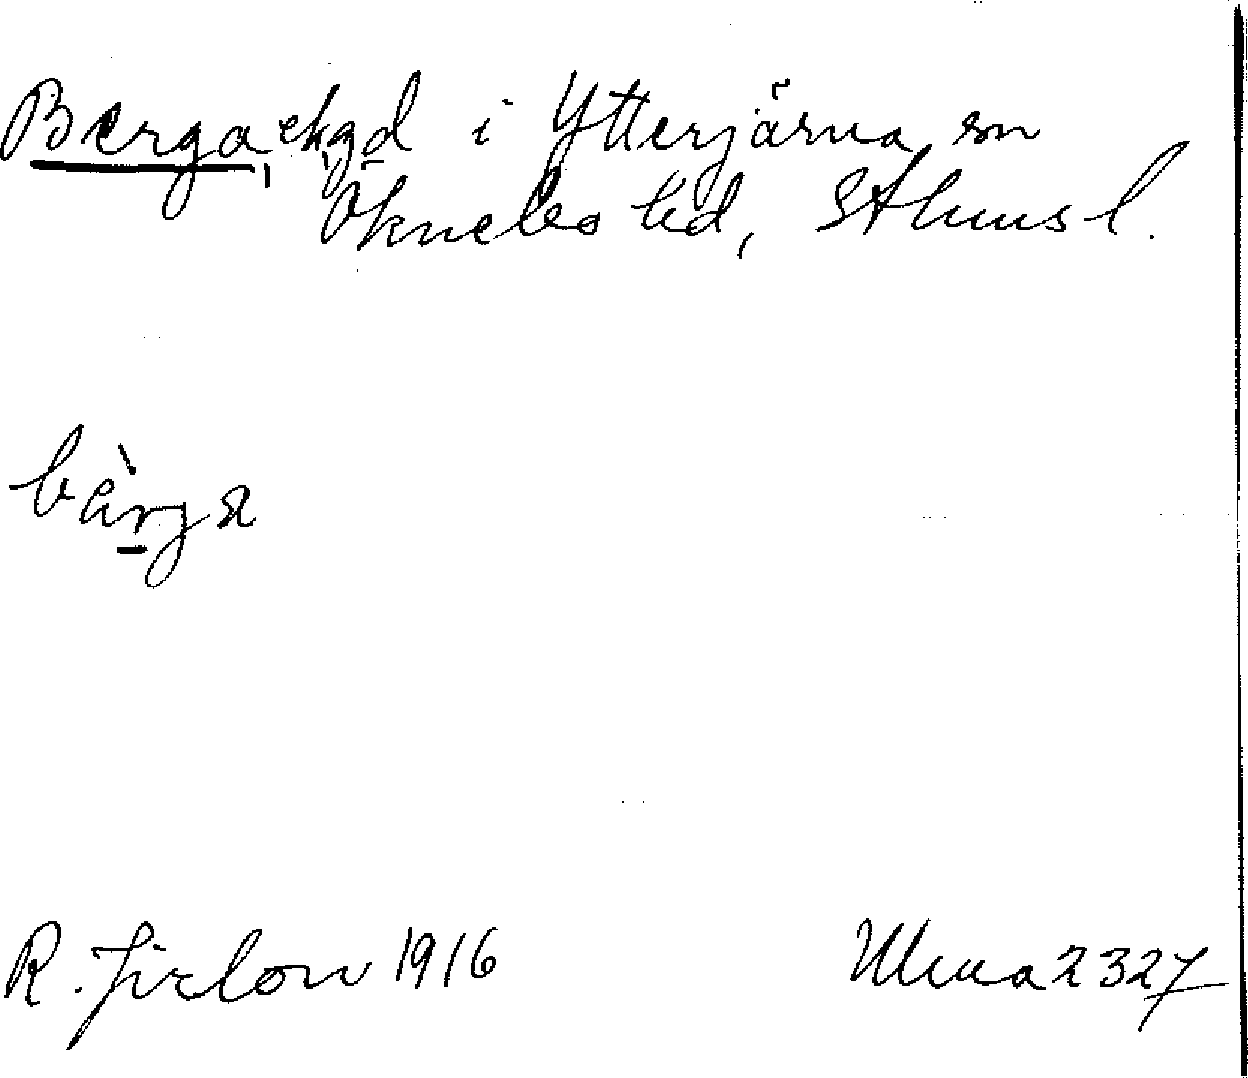 Berga, ekgd i Ytterjärna sn
Öknebo hd, Sthms l.
bàrga
R. Jirlow 1916
Ulma 2327